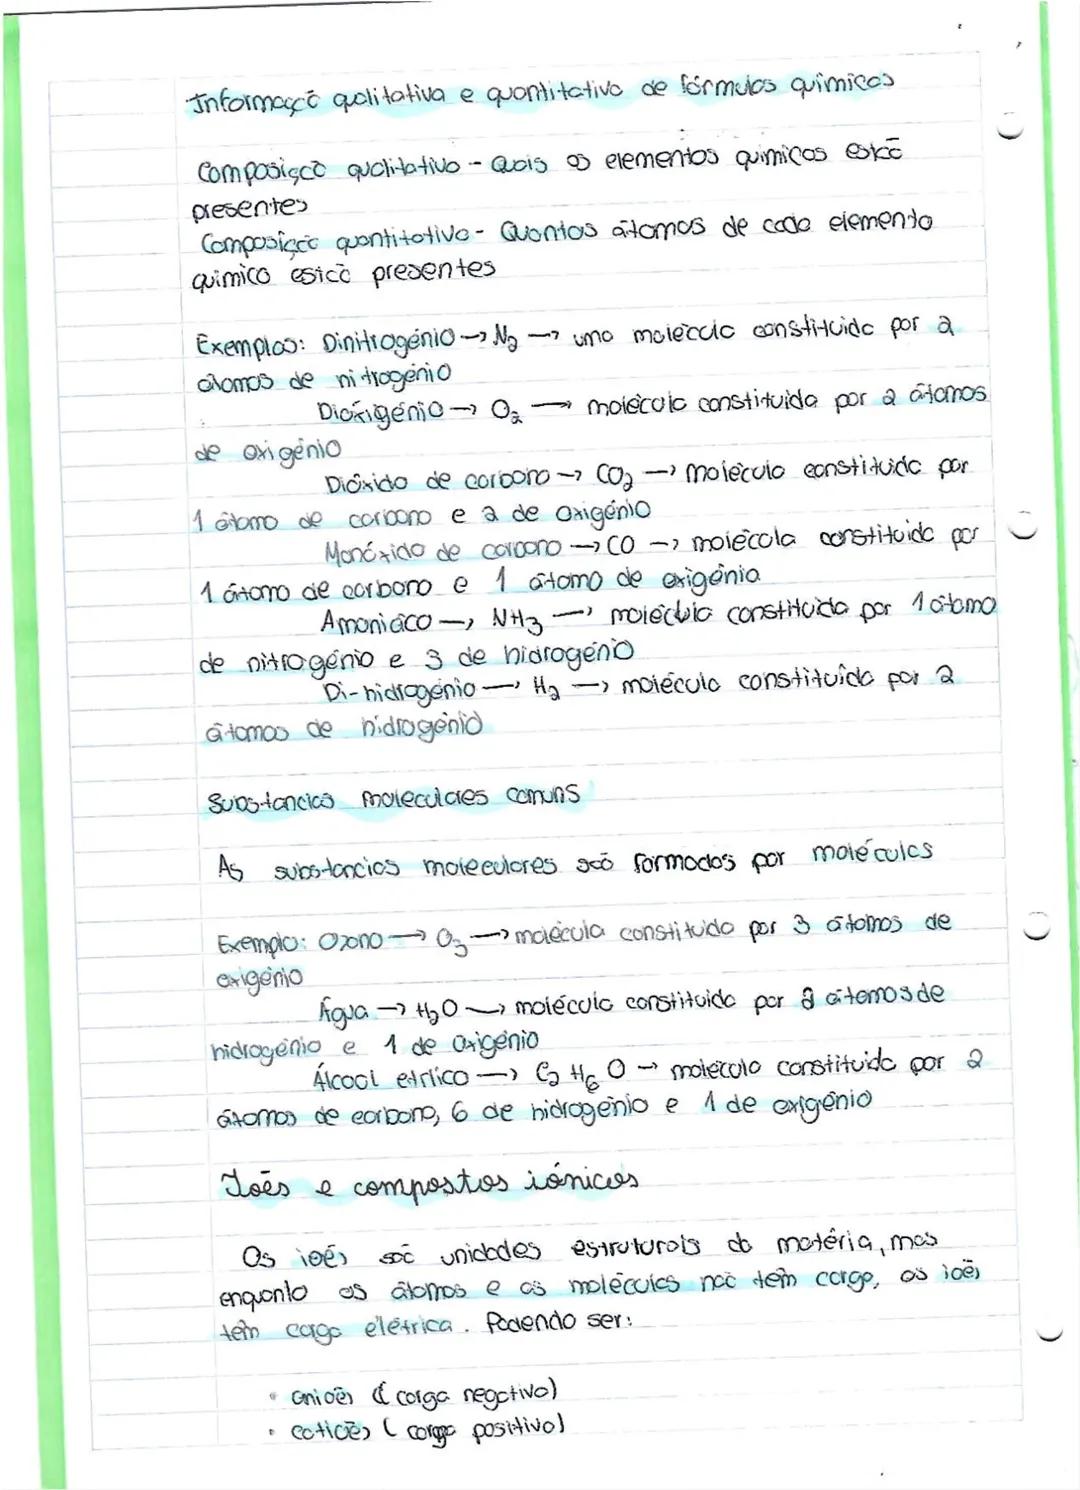 Informação qualitativa e quantitativa de fórmulas químicas
Composição qualitativa - Quais os elementos químicos estão
presentes
Composição quantitativa - Quantos átomos de cada elemento
químico estão presentes
Exemplos: Dinitrogénio → N₂ → uma molécula constituída por 2
átomos de nitrogénio
Dioxigénio → O₂ → molécula constituída por 2 átomos
de oxigénio
Dióxido de carbono → CO₂ → molécula constituída por
1 átomo de carbono e 2 de oxigénio
Monóxido de carbono → CO → molécula constituída por
1 átomo de carbono e 1 átomo de oxigénio
Amoníaco → NH₃ → molécula constituída por 1 átomo
de nitrogénio e 3 de hidrogénio
Di-hidrogénio → H₂ → molécula constituída por 2
átomos de hidrogénio
Substancias moleculares comuns
As substancias moleculares são formadas por moléculas
Exemplo: Ozono → O₃ → molécula constituida por 3 átomos de
oxigénio
Água → H₂O → molécula constituida por 2 átomos de
hidrogénio e 1 de oxigénio
Álcool etílico → C₂H₆O → molécula constituida por 2
átomos de carbono, 6 de hidrogénio e 1 de oxigénio
Iões e compostos iónicos
Os iões são unidades estruturais da matéria, mas
enquanto os átomos e as moléculas não têm carga, os iões
têm carga elétrica. Podendo ser:
• aniões (carga negativa)
• catiões (carga positiva)